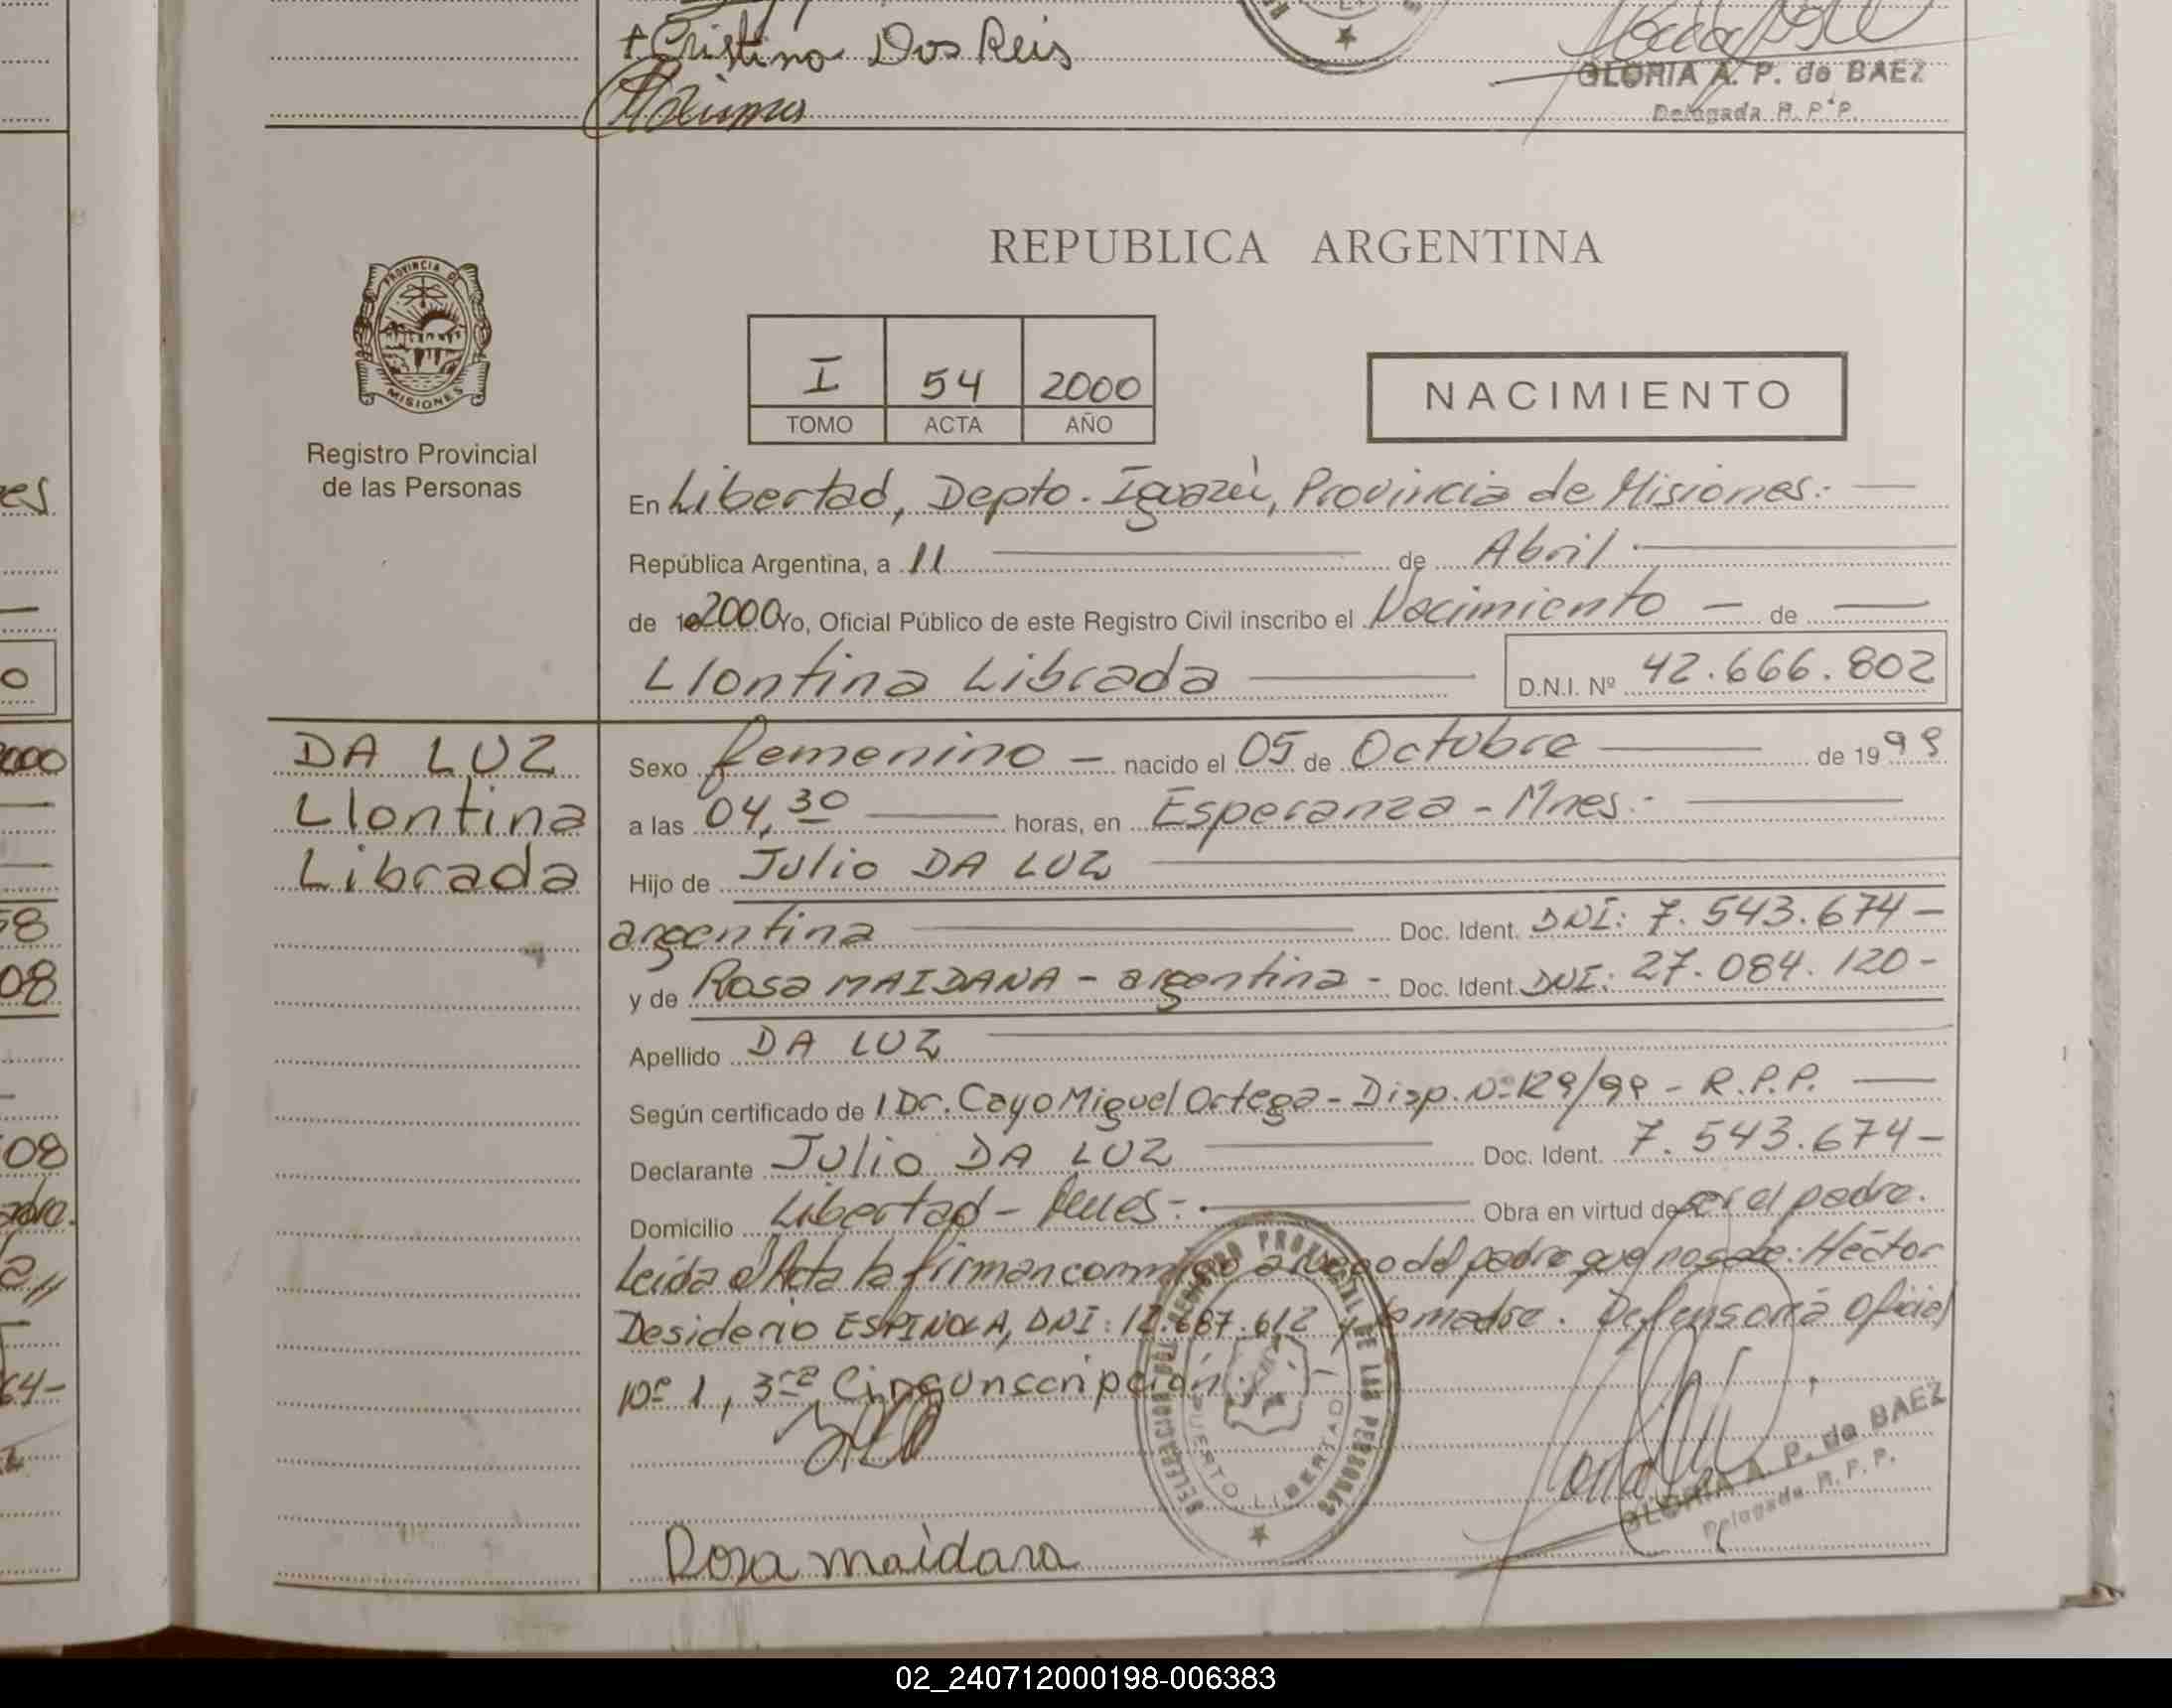 + Cristina Dos Reis
GLORIA A. P. de BAEZ
Delegada R. P. P.
REPUBLICA ARGENTINA
PROVINCIA DE
MISIONES
I 54 2000
TOMO ACTA AÑO
NACIMIENTO
Registro Provincial
de las Personas
En Libertad, Depto. Iguazú, Provincia de Misiones.-
República Argentina, a 11 de Abril
de 19 2000 Yo, Oficial Público de este Registro Civil inscribo el Nacimiento — de —
Llontina Librada
D.N.I. Nº 42.666.802
DA LUZ
Llontina
Librada
Sexo femenino — nacido el 05 de Octubre de 1999
a las 04,30 horas, en Esperanza - Mnes.-
Hijo de Julio DA LUZ
argentina Doc. Ident. DNI: 7.543.674-
y de Rosa MAIDANA - argentina - Doc. Ident. DNI: 27.084.120-
Apellido DA LUZ
Según certificado de l Dr. Cayo Miguel Ortega - Disp. Nº 129/99 - R.P.P.
Declarante Julio DA LUZ Doc. Ident. 7.543.674-
Domicilio Libertad - Mnes-. Obra en virtud de ser el padre.
Leída el Acta la firman conmigo a ruego del padre que no sabe: Héctor
Desiderio ESPINOLA, DNI: 12.687.612 y la madre. Defensoría Oficial
Nº 1, 3ra Circunscripción
REGISTRO PROVINCIAL DE LAS PERSONAS
PUERTO LIBERTAD
GLORIA A. P. de BAEZ
Delegada R. P. P.
Rosa maidana
02_240712000198-006383